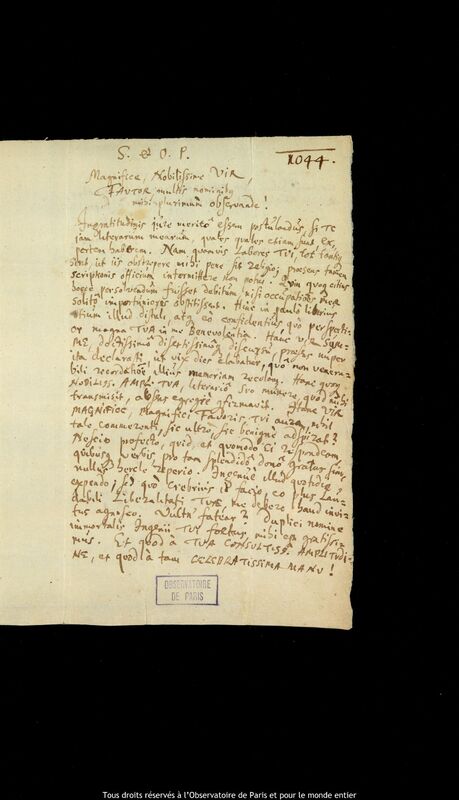 S. & O. P.
1044.
Magnifice, Nobilissime VIR,
FAUTOR multis nominibus
mihi plurimùm observande!
Ingratitudinis jure meritò essem postulandus, si TE
jam literarum mearum, quales quales etiam sunt, ex-
pertem haberem. Nam quamvis Labores TUI tot tantiq
sint, ut iis obstrepere mihi pene sit religio, prorsus tamen
scriptionis officium intermittere non potui. Quin quoq citius
hocce persolvendum fuisset debitum, nisi occupationes meæ
solitò importuniores obstitissent. Hinc in paulò liberius
otium illud distuli, atq eò confidentius quò perspectior
magna TUA in me Benevolentia. Hanc VIR SUM-
ME, doctissimo disertissimoq discursu, præsens nuper
ita declarasti, ut vix dies elabatur, quô non venera-
bili recordatione illius memoriam recolam. Hanc quoq
NOBILISS. AMPL. TUA, literariô suô munere, quod mihi
transmisit, absens egregiè confirmavit. Itane VIR
MAGNIFICE, Magnifici Favoris TUI aura, nihil
tale commerenti, sic ultrò, sic benignè adspirat?
Nescio profectò, quid, et quomodo Ei respondeam,
quibusq verbis pro tam splendidô donô gratus sim,
nullus hercle reperio. Ingenuè illud quotidie
expendo; sed quò crebrius id facio, eo plus Lau-
dabili Liberalitati TUÆ me debere haud invi-
tus agnosco. Vultu fatear? Duplici nomine
immortalis Ingenii TUI foetus, mihi est gratissi-
mus. Et quod à TUA CONSULTISS. AMPLITUDI-
NE, et quod à tam CELEBRATISSIMA MANU!
OBSERVATOIRE
DE PARIS
Tous droits réservés à l'Observatoire de Paris et pour le monde entier